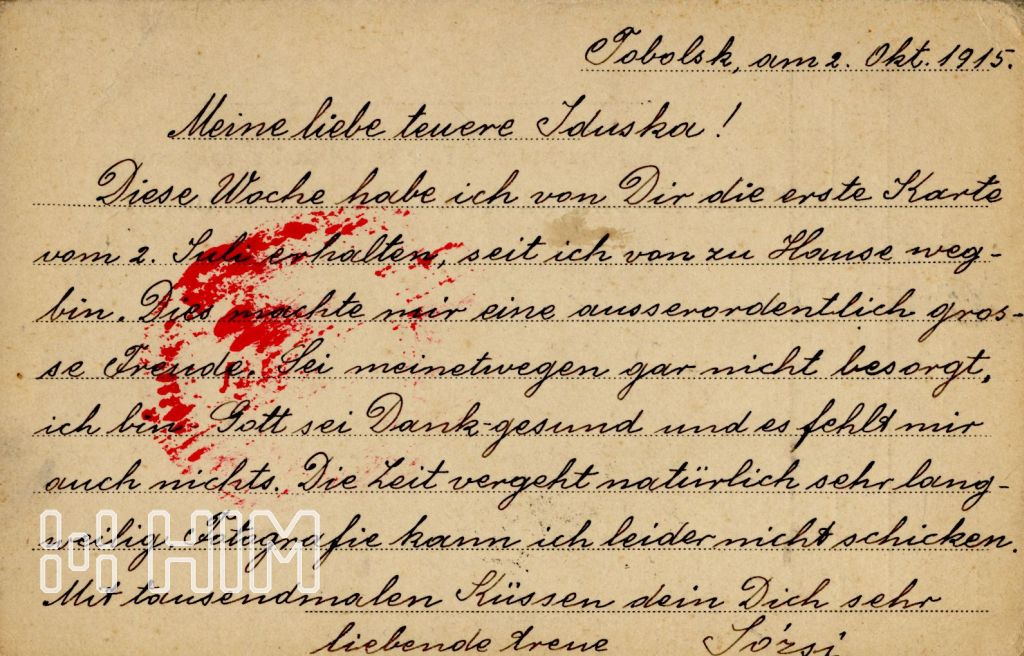 Tobolsk, am 2. Okt. 1915.
Meine liebe teuere Iduska!
Diese Woche habe ich von Dir die erste Karte
vom 2. Juli erhalten, seit ich von zu Hause weg-
bin. Dies machte mir eine ausserordentlich gros-
se Freude. Sei meinetwegen gar nicht besorgt,
ich bin Gott sei Dank gesund und es fehlt mir
auch nichts. Die Zeit vergeht natürlich sehr lang-
weilig. Fotografie kann ich leider nicht schicken.
HIM
Mit tausendmalen Küssen dein Dich sehr
liebende treue Józsi